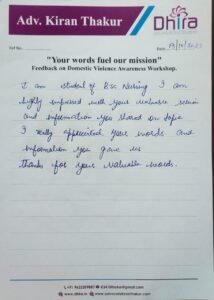 Adv. Kiran Thakur
Dhira
Ref No.
Date
"Your words fuel our mission"
Feedback on Domestic Violence Awareness Workshop.
I am student of B.sc Nursing I am
highly impressed with your valuable session
and information you shared on topic
I really appreciated your words and
information you gave us
thanks for your valuable words.
www.dhira.in
www.advocatekiranthakur.com